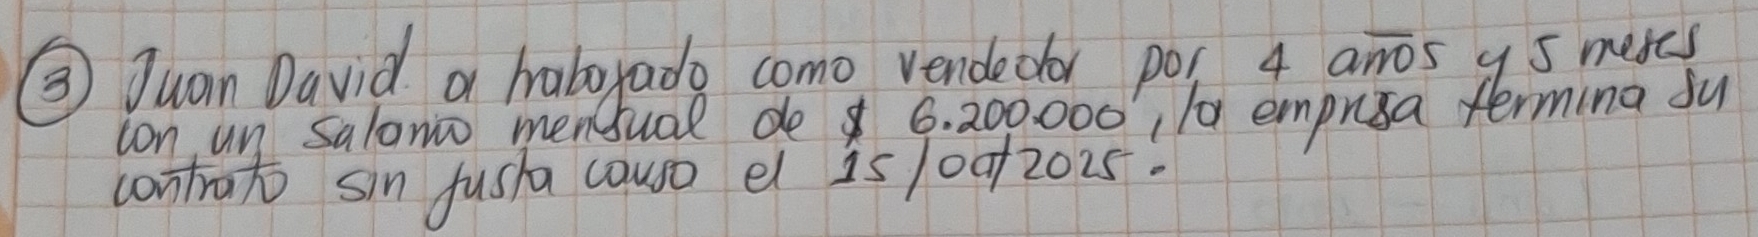 ③ Juan David a trabajado como vendedor por 4 años y 5 meses
con un salario mensual de $ 6.200.000, la empresa termina su
contrato sin justa causa el 15/oct/2025.